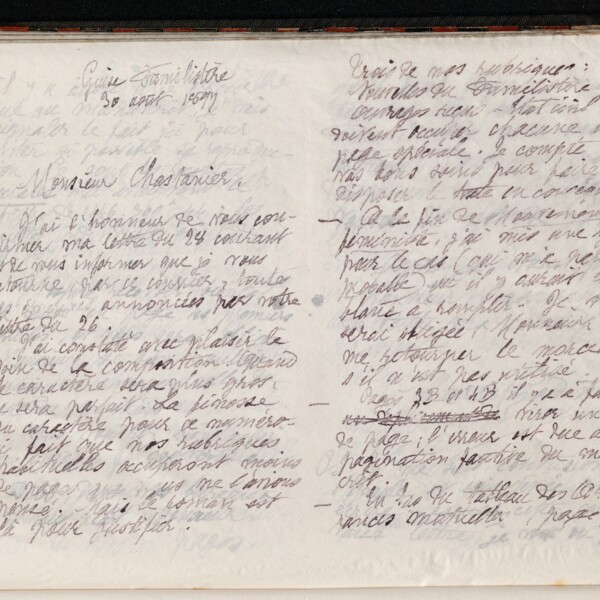 Guise Familistère
30 août 1897
Monsieur Chastanier.
J'ai l'honneur de vous con-
firmer ma lettre du 28 courant
et de vous informer que je vous
retourne par ce courrier toutes
les épreuves annoncées par votre
lettre du 26.
J'ai constaté avec plaisir le
soin de la composition. Quand
le caractère sera plus gros,
ce sera parfait. La finesse
du caractère pour ce numéro-
ci fait que nos rubriques
habituelles occuperont moins
de pages que nous ne l'avions
pensé. Mais le roman est
là pour justifier.
trois de nos rubriques:
Nouvelles du Familistère
Ouvrages reçus — Etat civil
doivent occuper chacune
page spéciale. Je compte
vos bons soins pour faire
disposer le texte en conséq
— A la fin de Mouvement
féministe, j'ai mis une
pour le cas (qui me
où il y aurait
blanc à remplir. Je
serai obligée, Monsieur
me retourner le morce
s'il n'est pas utilisé.
— Pages 3B et 4B il y a à fa
virer un
de page; l'erreur est due à
pagination fautive du m
crit.
— En bas du tableau des As
rances mutuelles, page